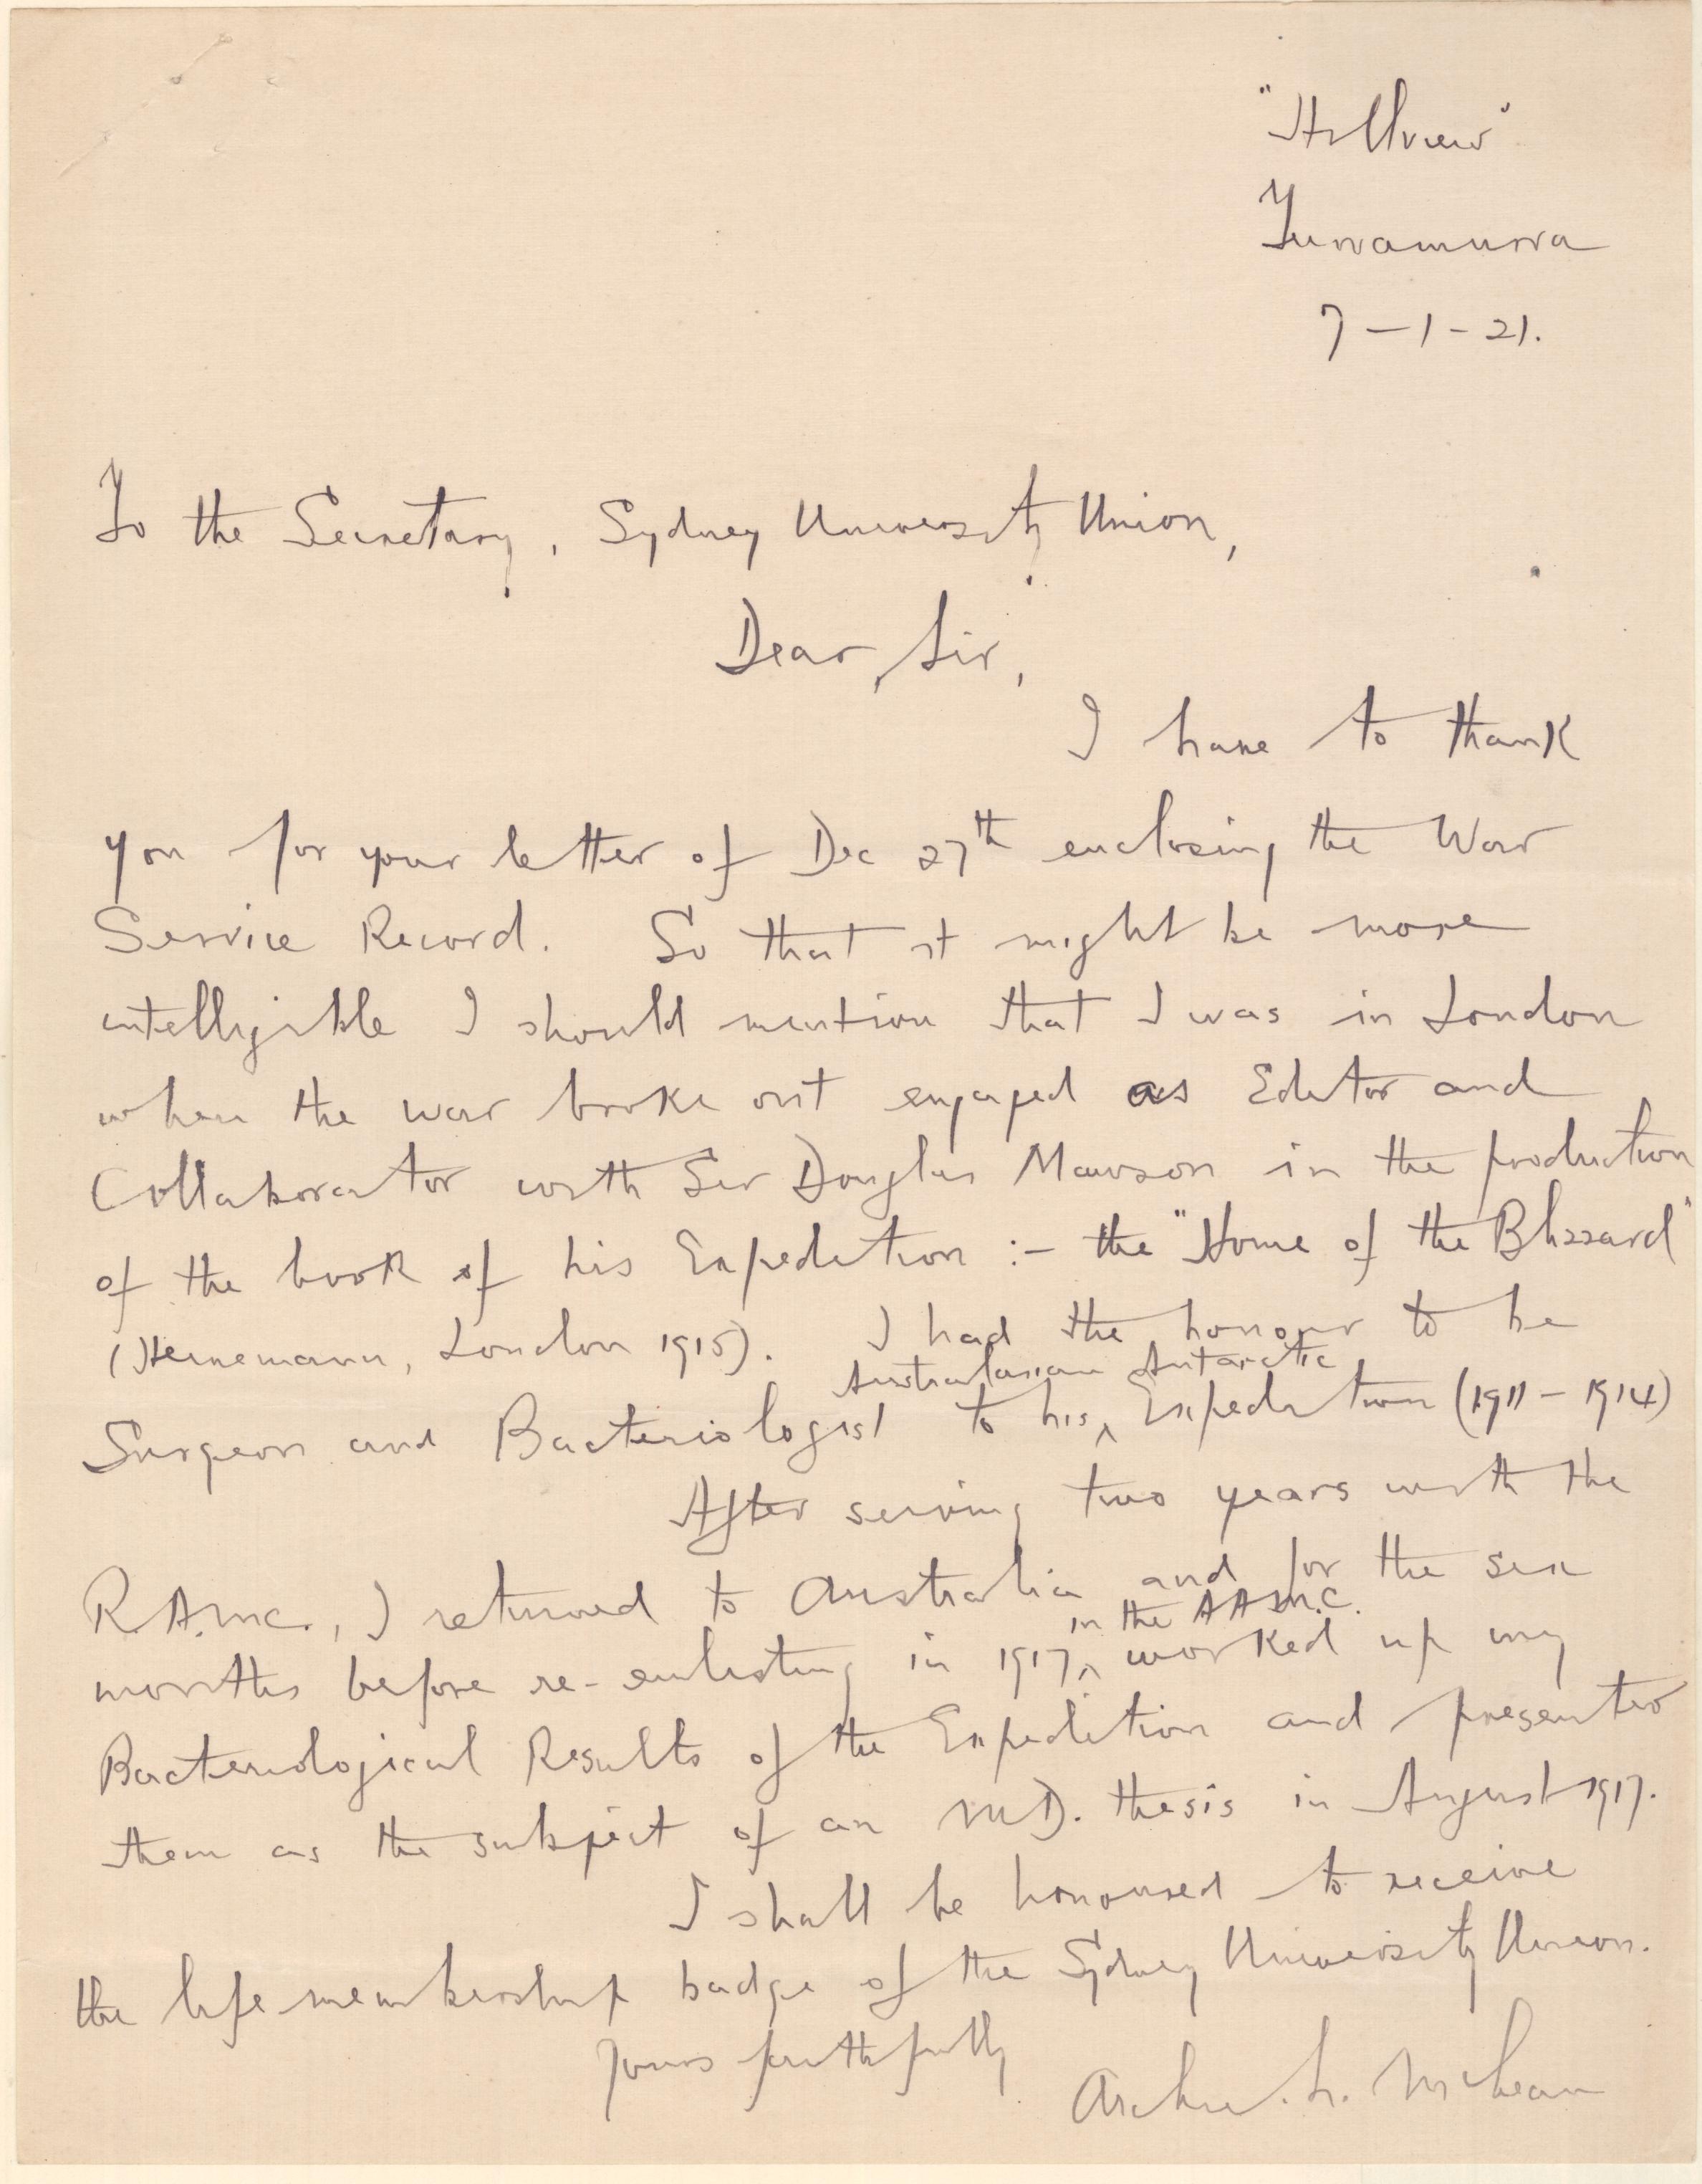 "Hillview"
Turramurra
7-1-21.
To the Secretary, Sydney University Union,
Dear Sir,
I have to thank
you for your letter of Dec 27th enclosing the War
Service Record. So that it might be more
intelligible I should mention that I was in London
when the war broke out engaged as Editor and
Collaborator with Sir Douglas Mawson in the production
of the book of his Expedition :- the "Home of the Blizzard"
(Heinemann, London 1915). I had the honour to be
Australasian Antarctic
Surgeon and Bacteriologist to his ^ Expedition (1911-1914)
After serving two years with the
R.A.M.C., I returned to Australia and for the six
in the A.A.M.C.
months before re-enlisting in 1917 ^ worked up my
Bacteriological Results of the Expedition and presented
them as the subject of an M.D. thesis in August 1917.
I shall be honoured to receive
the life-membership badge of the Sydney University Union.
Yours faithfully
Archie. L. McLean